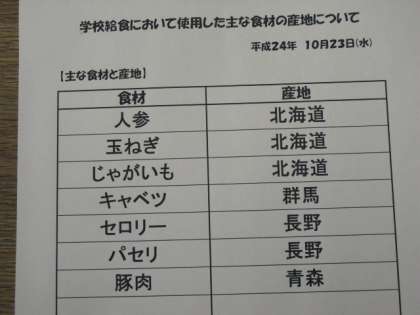 学校給食において使用した主な食材の産地について
平成24年 10月23日(水)
【主な食材と産地】
食材 産地
人参 北海道
玉ねぎ 北海道
じゃがいも 北海道
キャベツ 群馬
セロリー 長野
パセリ 長野
豚肉 青森